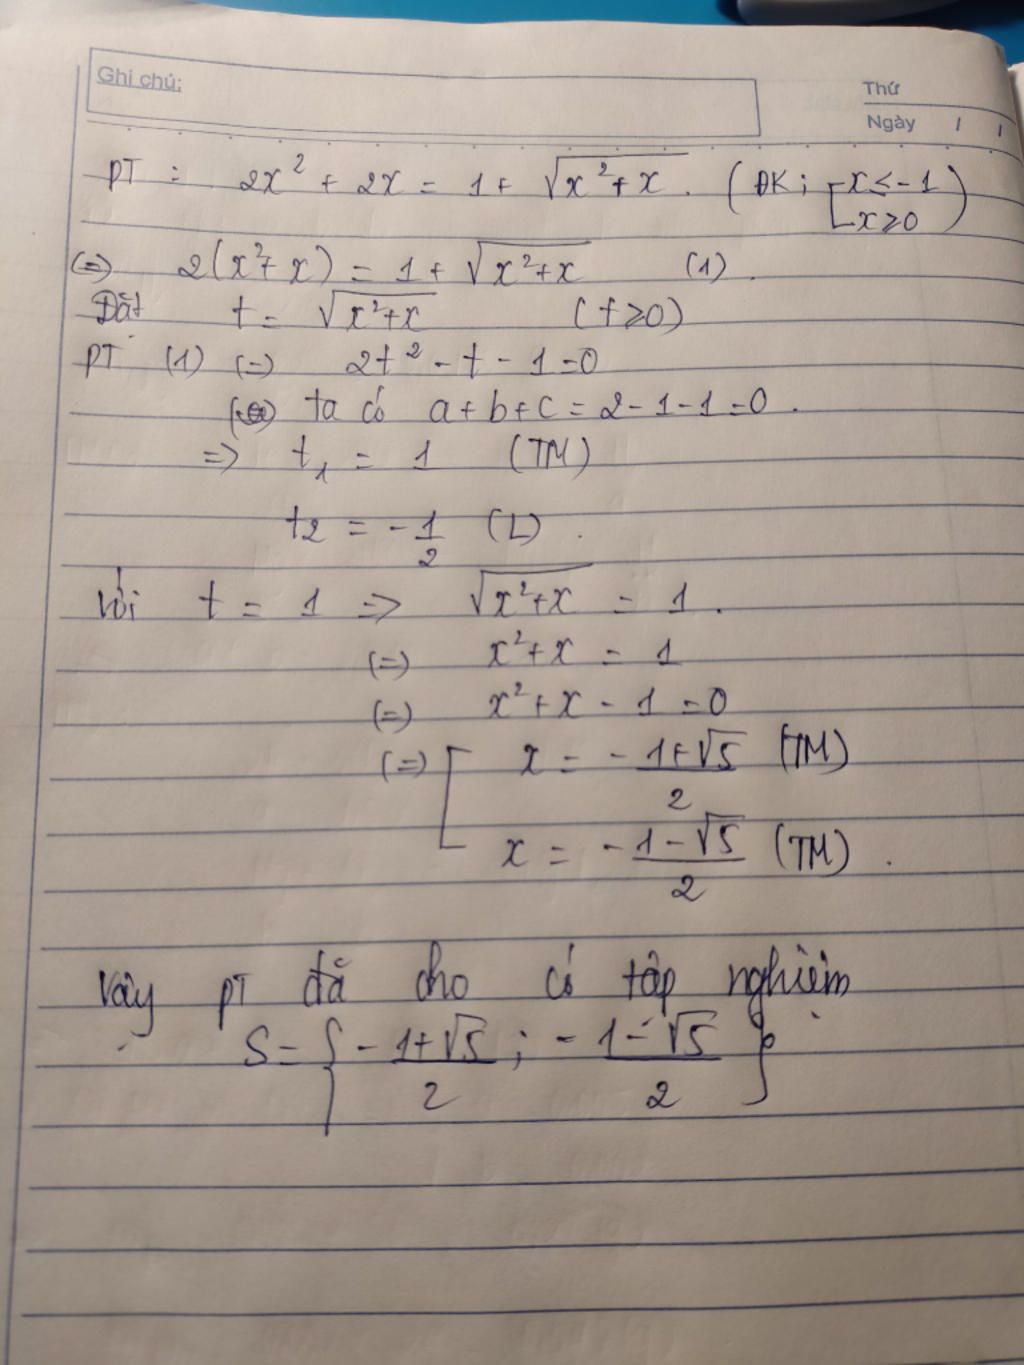 Ghi chú:
Thứ
Ngày / /
PT : 2x² + 2x = 1 + √(x²+x) . (ĐK : [x ≤ -1
x ≥ 0)
(=) 2(x²+x) = 1 + √(x²+x) (1) .
Đặt t = √(x²+x) (t ≥ 0)
PT (1) (=) 2t² - t - 1 = 0
ta có a + b + c = 2 - 1 - 1 = 0 .
=> t₁ = 1 (TM)
t₂ = -1/2 (L) .
Với t = 1 => √(x²+x) = 1 .
(=) x² + x = 1
(=) x² + x - 1 = 0
(=) [ x = - (1+√5)/2 (TM)
x = - (1-√5)/2 (TM) .
Vậy PT đã cho có tập nghiệm
S = { - (1+√5)/2 ; - (1-√5)/2 }